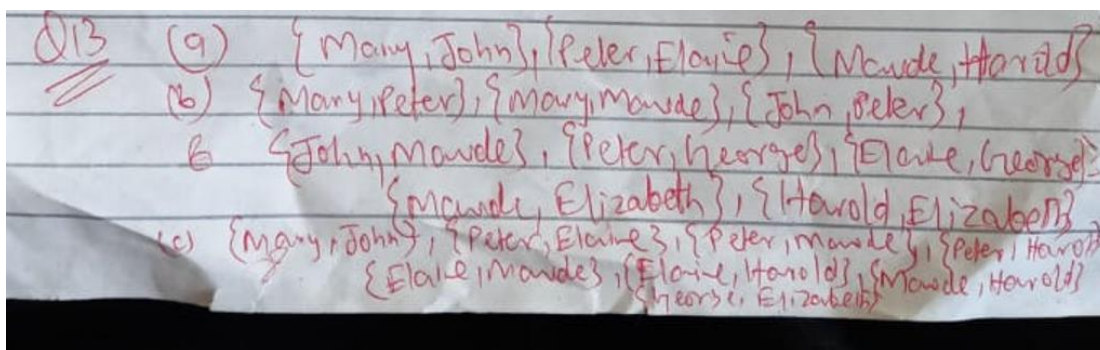 Q13 (a) {Mary, John}, {Peter, Elaine}, {Maude, Harold}
(b) {Mary, Peter}, {Mary, Maude}, {John, Peter},
{John, Maude}, {Peter, George}, {Elaine, George},
{Maude, Elizabeth}, {Harold, Elizabeth}
(c) {Mary, John}, {Peter, Elaine}, {Peter, Maude}, {Peter, Harold
{Elaine, Maude}, {Elaine, Harold}, {Maude, Harold}
{George, Elizabeth}